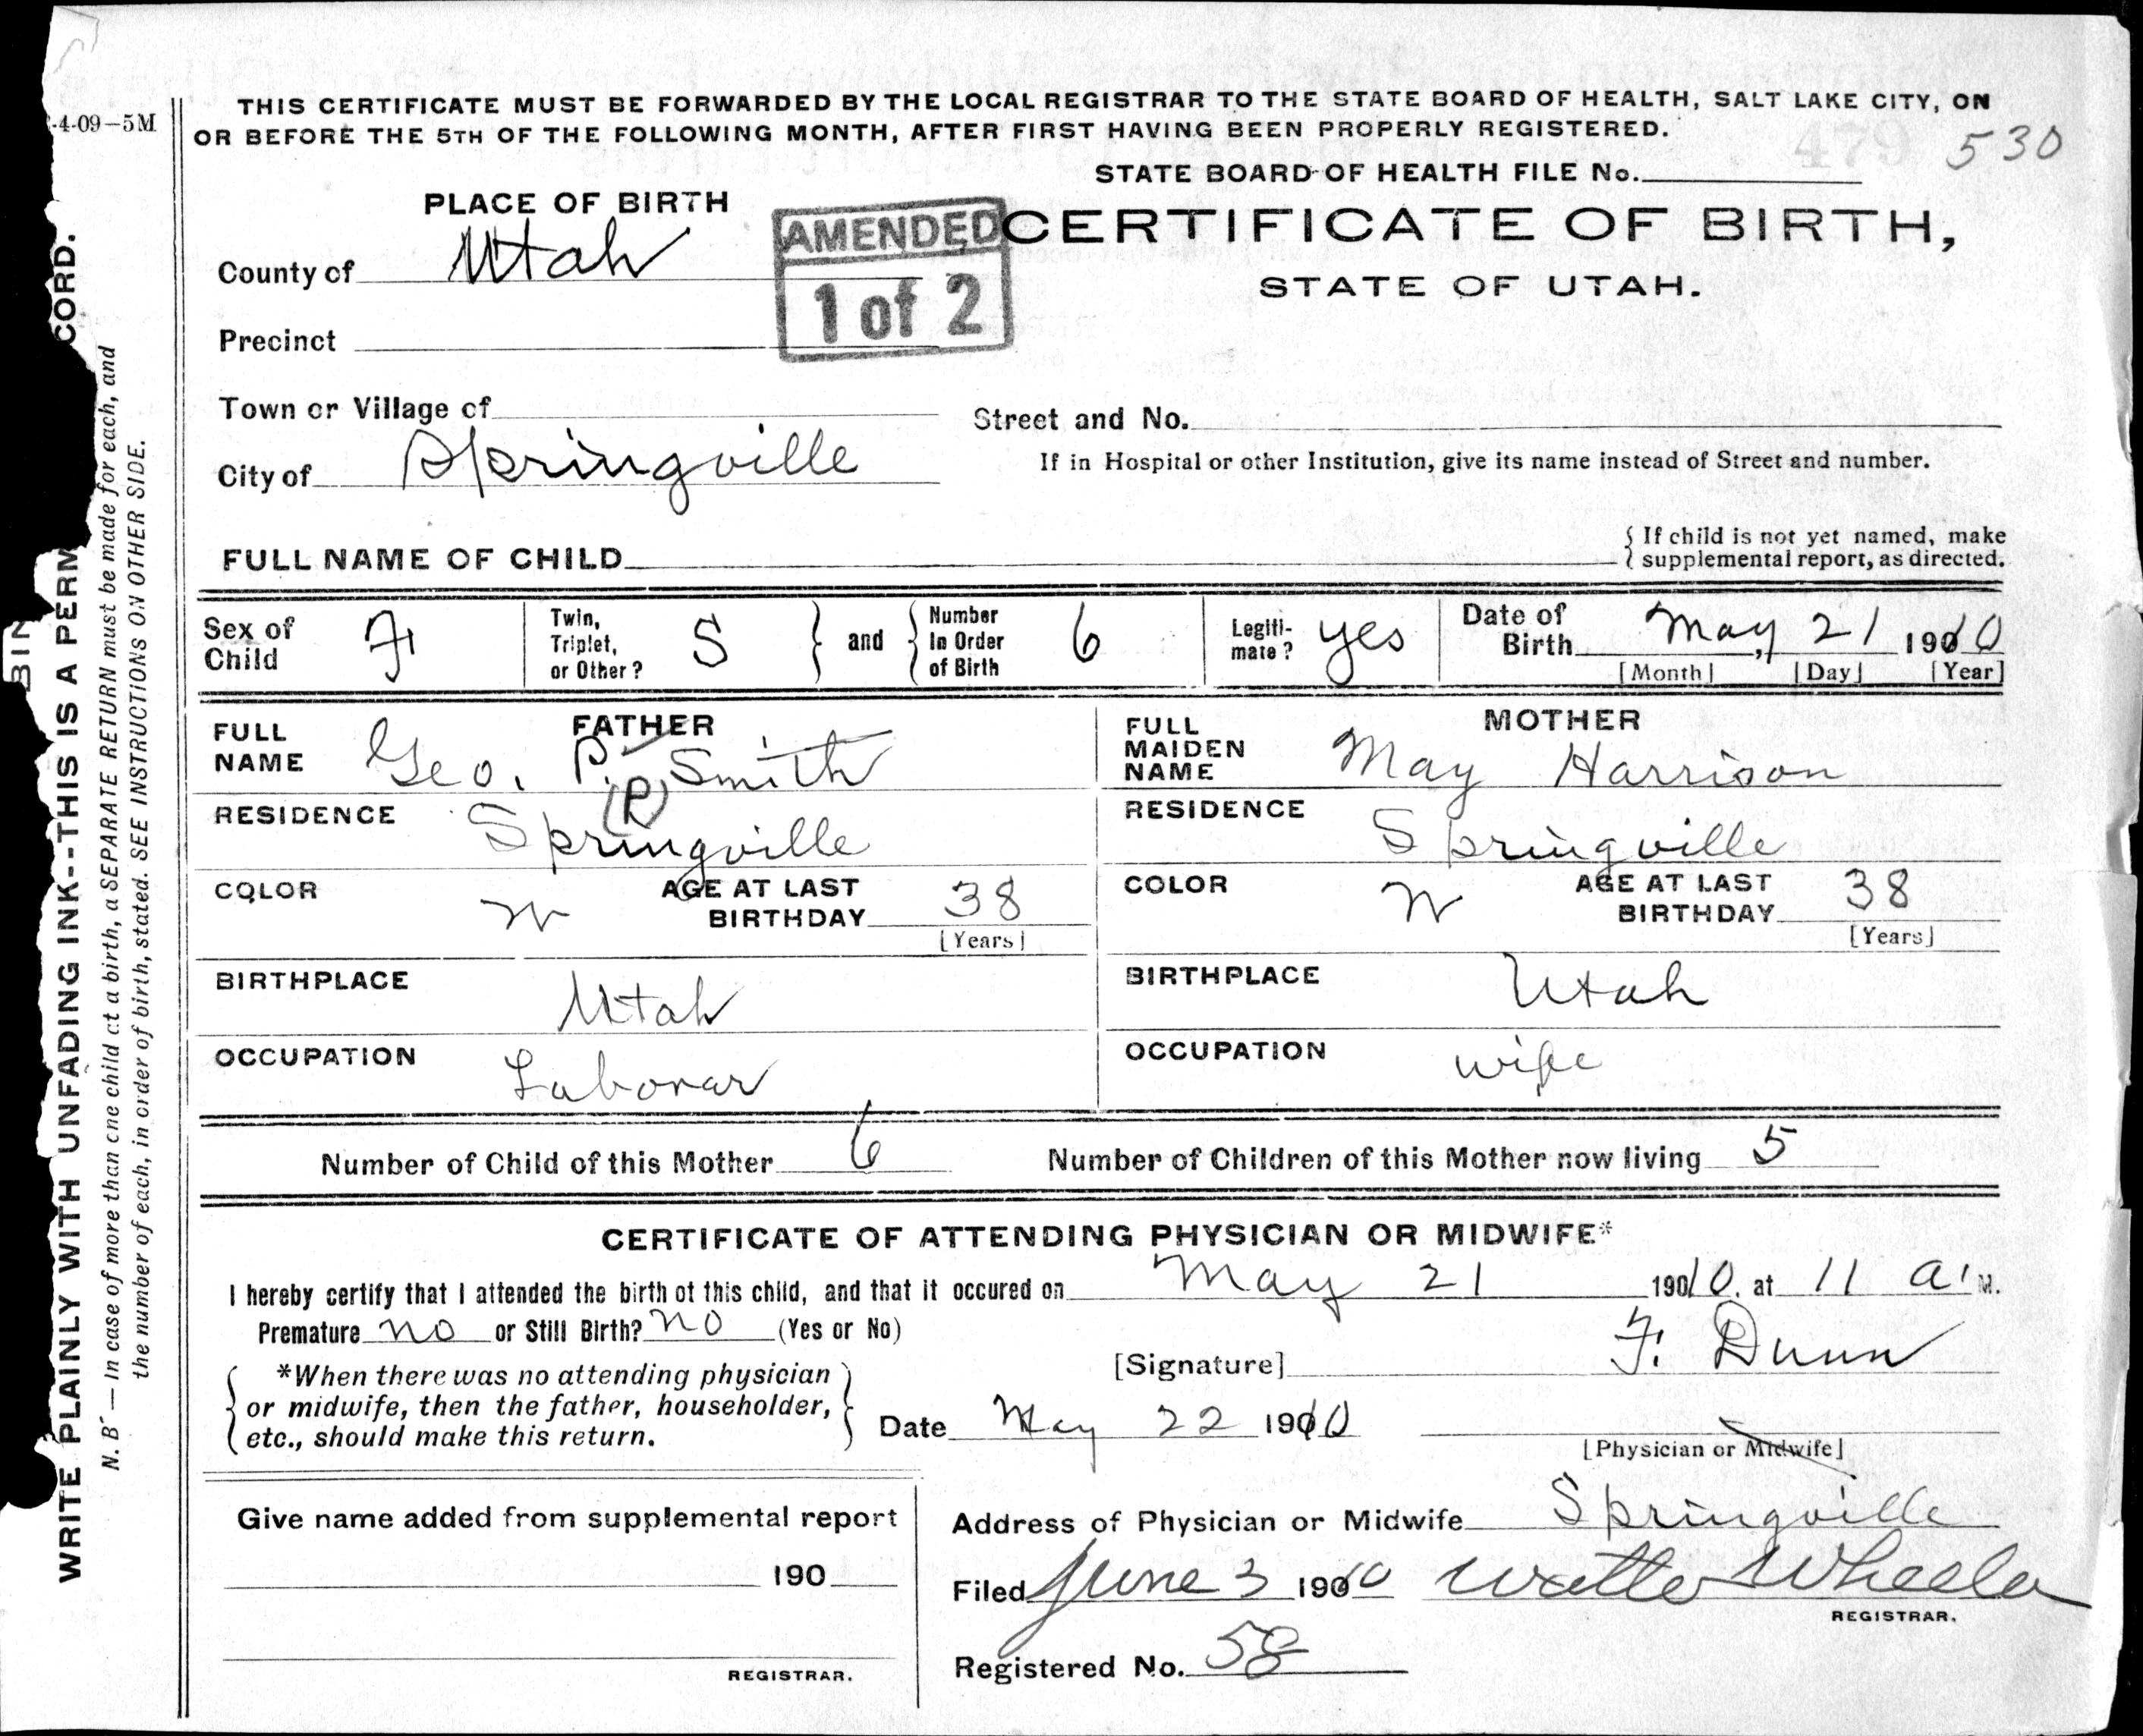 THIS CERTIFICATE MUST BE FORWARDED BY THE LOCAL REGISTRAR TO THE STATE BOARD OF HEALTH, SALT LAKE CITY, ON
-4-09-5M
OR BEFORE THE 5TH OF THE FOLLOWING MONTH, AFTER FIRST HAVING BEEN PROPERLY REGISTERED.
479 530
STATE BOARD OF HEALTH FILE No.
PLACE OF BIRTH
AMENDED
1 of 2
CERTIFICATE OF BIRTH,
STATE OF UTAH.
County of Utah
Precinct
Town or Village of
Street and No.
City of Springville
If in Hospital or other Institution, give its name instead of Street and number.
FULL NAME OF CHILD
If child is not yet named, make
supplemental report, as directed.
Sex of Child F
Twin, Triplet, or Other? S
and
Number In Order of Birth 6
Legiti-mate? yes
Date of Birth May 21 1910
[Month] [Day] [Year]
FATHER
FULL NAME Geo. P. Smith
(P)
RESIDENCE Springville
COLOR W
AGE AT LAST BIRTHDAY 38
[Years]
BIRTHPLACE Utah
OCCUPATION Laborar
MOTHER
FULL MAIDEN NAME May Harrison
RESIDENCE Springville
COLOR W
AGE AT LAST BIRTHDAY 38
[Years]
BIRTHPLACE Utah
OCCUPATION wife
Number of Child of this Mother 6 Number of Children of this Mother now living 5
CERTIFICATE OF ATTENDING PHYSICIAN OR MIDWIFE*
I hereby certify that I attended the birth of this child, and that it occured on May 21 19010. at 11 a. M.
Premature no or Still Birth? no (Yes or No)
*When there was no attending physician
or midwife, then the father, householder,
etc., should make this return.
[Signature] F. Dunn
Date May 22 1910
[Physician or Midwife]
Give name added from supplemental report
190
REGISTRAR.
Address of Physician or Midwife Springville
Filed June 3 1910 Walter Wheeler
REGISTRAR.
Registered No. 58
BIN
WRITE PLAINLY WITH UNFADING INK--THIS IS A PERM CORD.
N. B.— In case of more than one child at a birth, a SEPARATE RETURN must be made for each, and
the number of each, in order of birth, stated. SEE INSTRUCTIONS ON OTHER SIDE.